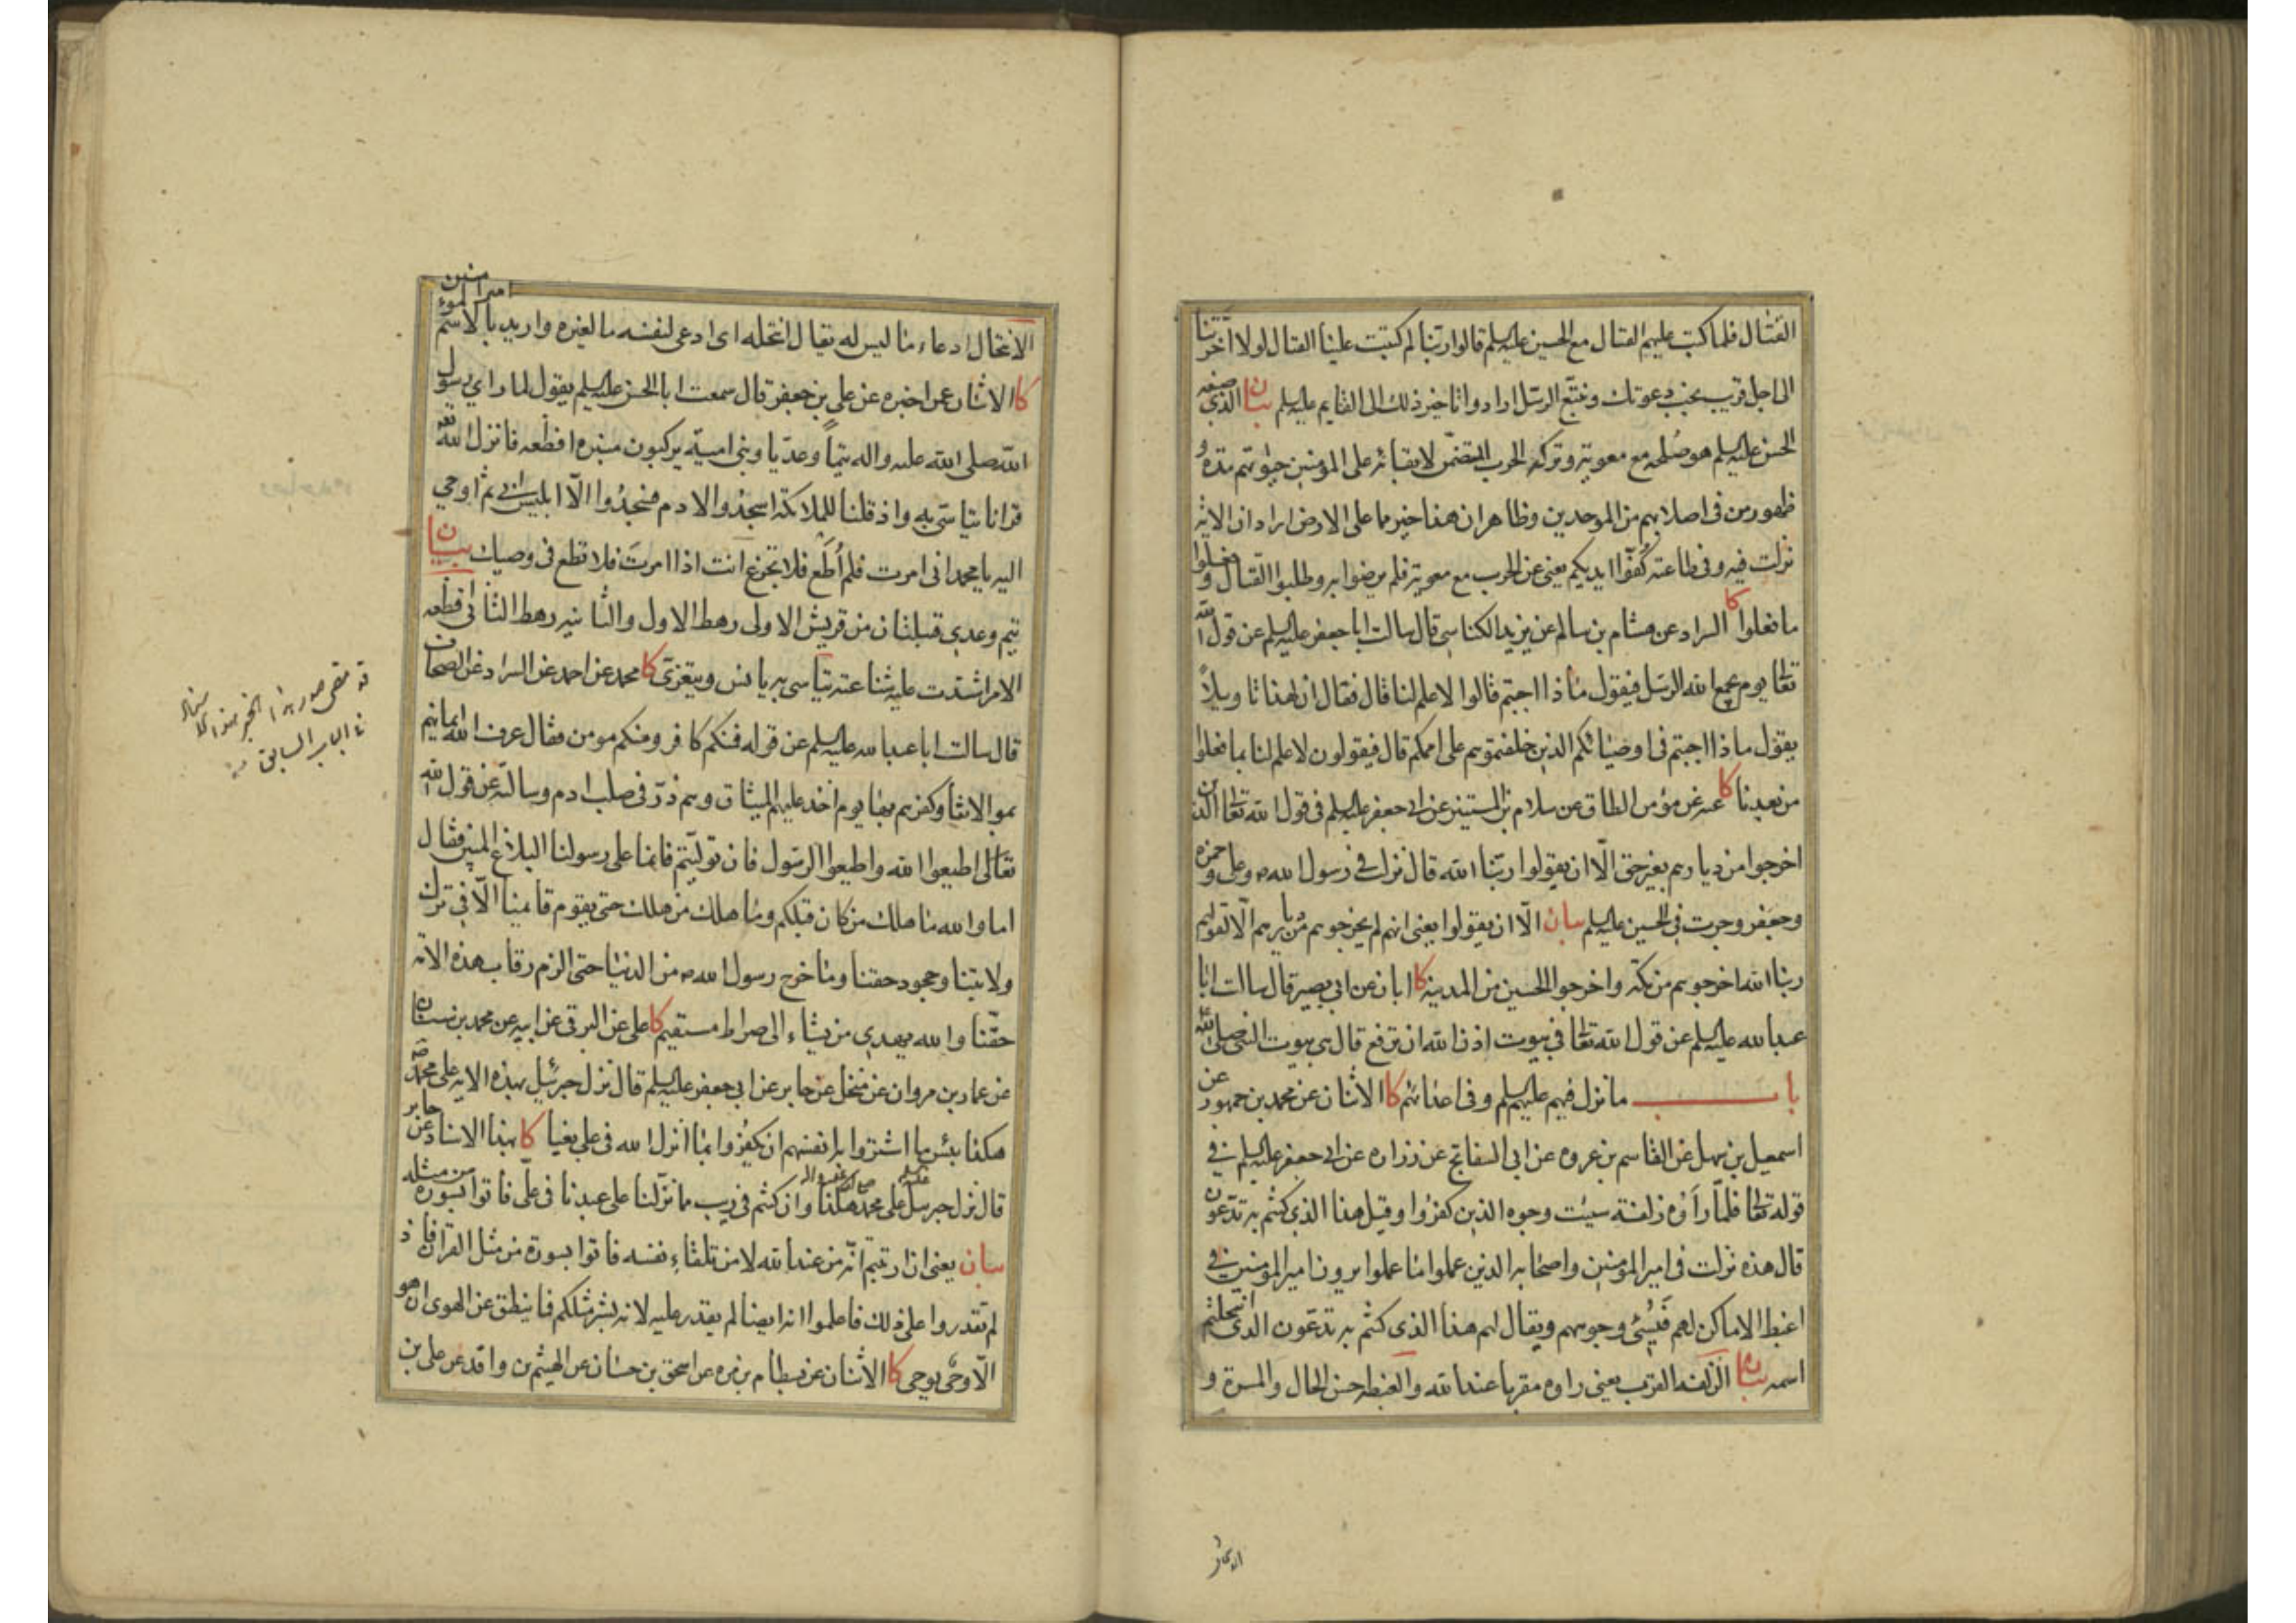 القتال فلما كتب عليهم القتال مع الحسين عليه السلم قالوا ربنا لم كتبت علينا القتال لولا اخرتنا
الى اجل قريب نجب دعوتك ونتبع الرسل ارادوا تاخير ذلك الى القايم عليه السلم بيان الذي صنعه
الحسن عليه السلم هو صلحه مع معوية وتركه الحرب المتضمن لابقائه على المؤمنين حيوتهم مدة و
ظهور من في اصلابهم من الموحدين وظاهر ان هذا خير ما على الارض اراد ان الاية
نزلت فيه وفي طاعته كفوا ايديكم يعني عن الحرب مع معوية فلم يرضوا به وطلبوا القتال وفعلوا
ما فعلوا كا السراد عن هشام بن سالم عن يزيد الكناسي قال سالت ابا جعفر عليه السلم عن قول الله
تعا يوم يجمع الله الرسل فيقول ماذا اجبتم قالوا لا علم لنا قال فقال ان لهذا تاويلا
يقول ماذا اجبتم في اوصيائكم الذين خلفتموهم على اممكم قال فيقولون لا علم لنا بما فعلوا
من بعدنا كا عنه عن مؤمن الطاق عن سلام بن المستنير عن ابي جعفر عليه السلم في قول الله تعا الذين
اخرجوا من ديارهم بغير حق الا ان يقولوا ربنا الله قال نزلت في رسول الله ص وعلي وحمزه
وجعفر وجرت في الحسين عليه السلم بيان الا ان يقولوا يعني انهم لم يخرجوهم من ديارهم الا لقولهم
ربنا الله اخرجوهم من مكة واخرجوا الحسين من المدينة كا ابان عن ابي بصير قال سالت ابا
عبد الله عليه السلم عن قول الله تعا في بيوت اذن الله ان ترفع قال هي بيوت النبي صلى الله
باب ما نزل فيهم عليهم السلم وفي اعدائهم كا الاثنان عن محمد بن جمهور عن
اسمعيل بن سهل عن القاسم بن عروه عن ابي السفاتج عن زراره عن ابي جعفر عليه السلم في
قوله تعا فلما راوه زلفة سيئت وجوه الذين كفروا وقيل هذا الذي كنتم به تدعون
قال هذه نزلت في امير المؤمنين واصحابه الذين عملوا ما عملوا يرون امير المؤمنين في
اغبط الاماكن لهم فيسئ وجوههم ويقال لهم هذا الذي كنتم به تدعون الذي انتحلتم
اسمه بيان الزلفة القرب يعني راوه مقربا عند الله والغبطه حسن الحال والمسرة و
الانتحال ادعاء ما ليس له يقال انتحله اى ادعى لنفسه ما لغيره واريد بالاسم امير المؤمنين
كا الاثنان عن اخبره عن علي بن جعفر قال سمعت ابا الحسن عليه السلم يقول لما راي رسول
الله صلى الله عليه واله تيما وعديا وبني امية يركبون منبره افظعه فانزل الله تعا
قرانا يتاسى به واذ قلنا للملائكة اسجدوا لادم فسجدوا الا ابليس ابى ثم اوحي
اليه يا محمد اني امرت فلم اطع فلا تجزع انت اذا امرت فلا تطع في وصيك بيان
تيم وعدي قبيلتان من قريش الاولى رهط الاول والثانية رهط الثاني افظعه
الامر اشتدت عليه شناعته يتاسى به يانس ويتعزى كا محمد عن احمد عن السراد عن الصحاف
قال سالت ابا عبد الله عليه السلم عن قوله فمنكم كافر ومنكم مومن فقال عرف الله ايمانهم
بموالاتنا وكفرهم بها يوم اخذ عليهم الميثاق وهم ذر في صلب ادم وسالته عن قول الله
تعالى اطيعوا الله واطيعوا الرسول فان توليتم فانما على رسولنا البلاغ المبين فقال
اما والله ما هلك من كان قبلكم وما هلك من هلك حتى يقوم قائمنا الا في ترك
ولايتنا وجحود حقنا وما خرج رسول الله ص من الدنيا حتى الزم رقاب هذه الامة
حقنا والله يهدي من يشاء الى صراط مستقيم كا علي عن البرقي عن ابيه عن محمد بن سنان
عن عمار بن مروان عن منخل عن جابر عن ابي جعفر عليه السلم قال نزل جبرئيل بهذه الاية على محمد ص
هكذا بئس ما اشتروا به انفسهم ان يكفروا بما انزل الله في علي بغيا كا بهذا الاسناد عن جابر
قال نزل جبرئيل على محمد هكذا وان كنتم في ريب مما نزلنا على عبدنا في علي فاتوا بسورة من مثله
بيان يعني ان ارتبتم انه من عند الله لا من تلقاء نفسه فاتوا بسورة من مثل القران فاذ
لم تقدروا على ذلك فاعلموا انه ايضا لم يقدر عليه لانه بشر مثلكم فما ينطق عن الهوى ان هو
الا وحي يوحى كا الاثنان عن بسطام بن مره عن اسحق بن حسان عن الهيثم بن واقد عن علي بن
قد مضى صدر هذا الخبر بهذا الاسناد
في الباب السابق منه
الانتحال